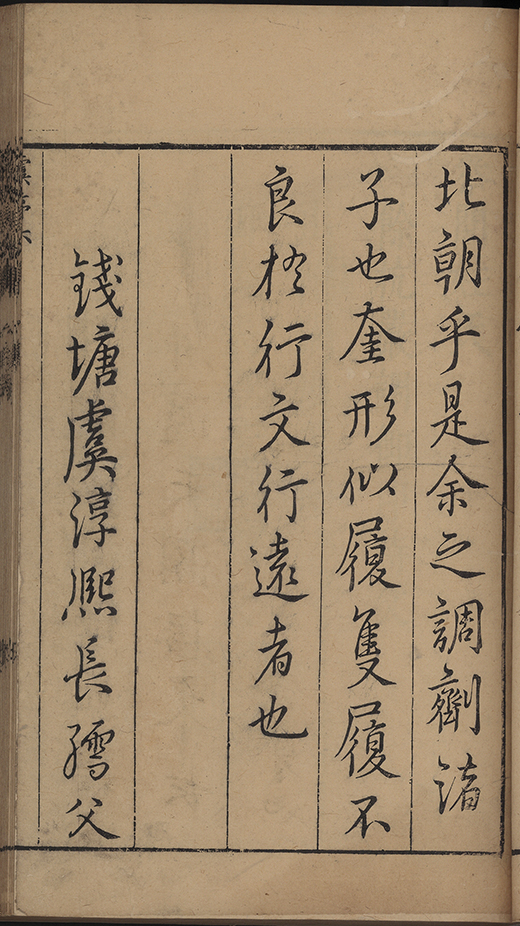 北朝乎是余之調劑諸
子也奎形似履隻履不
良於行文行遠者也
錢塘虞淳熙長孺父